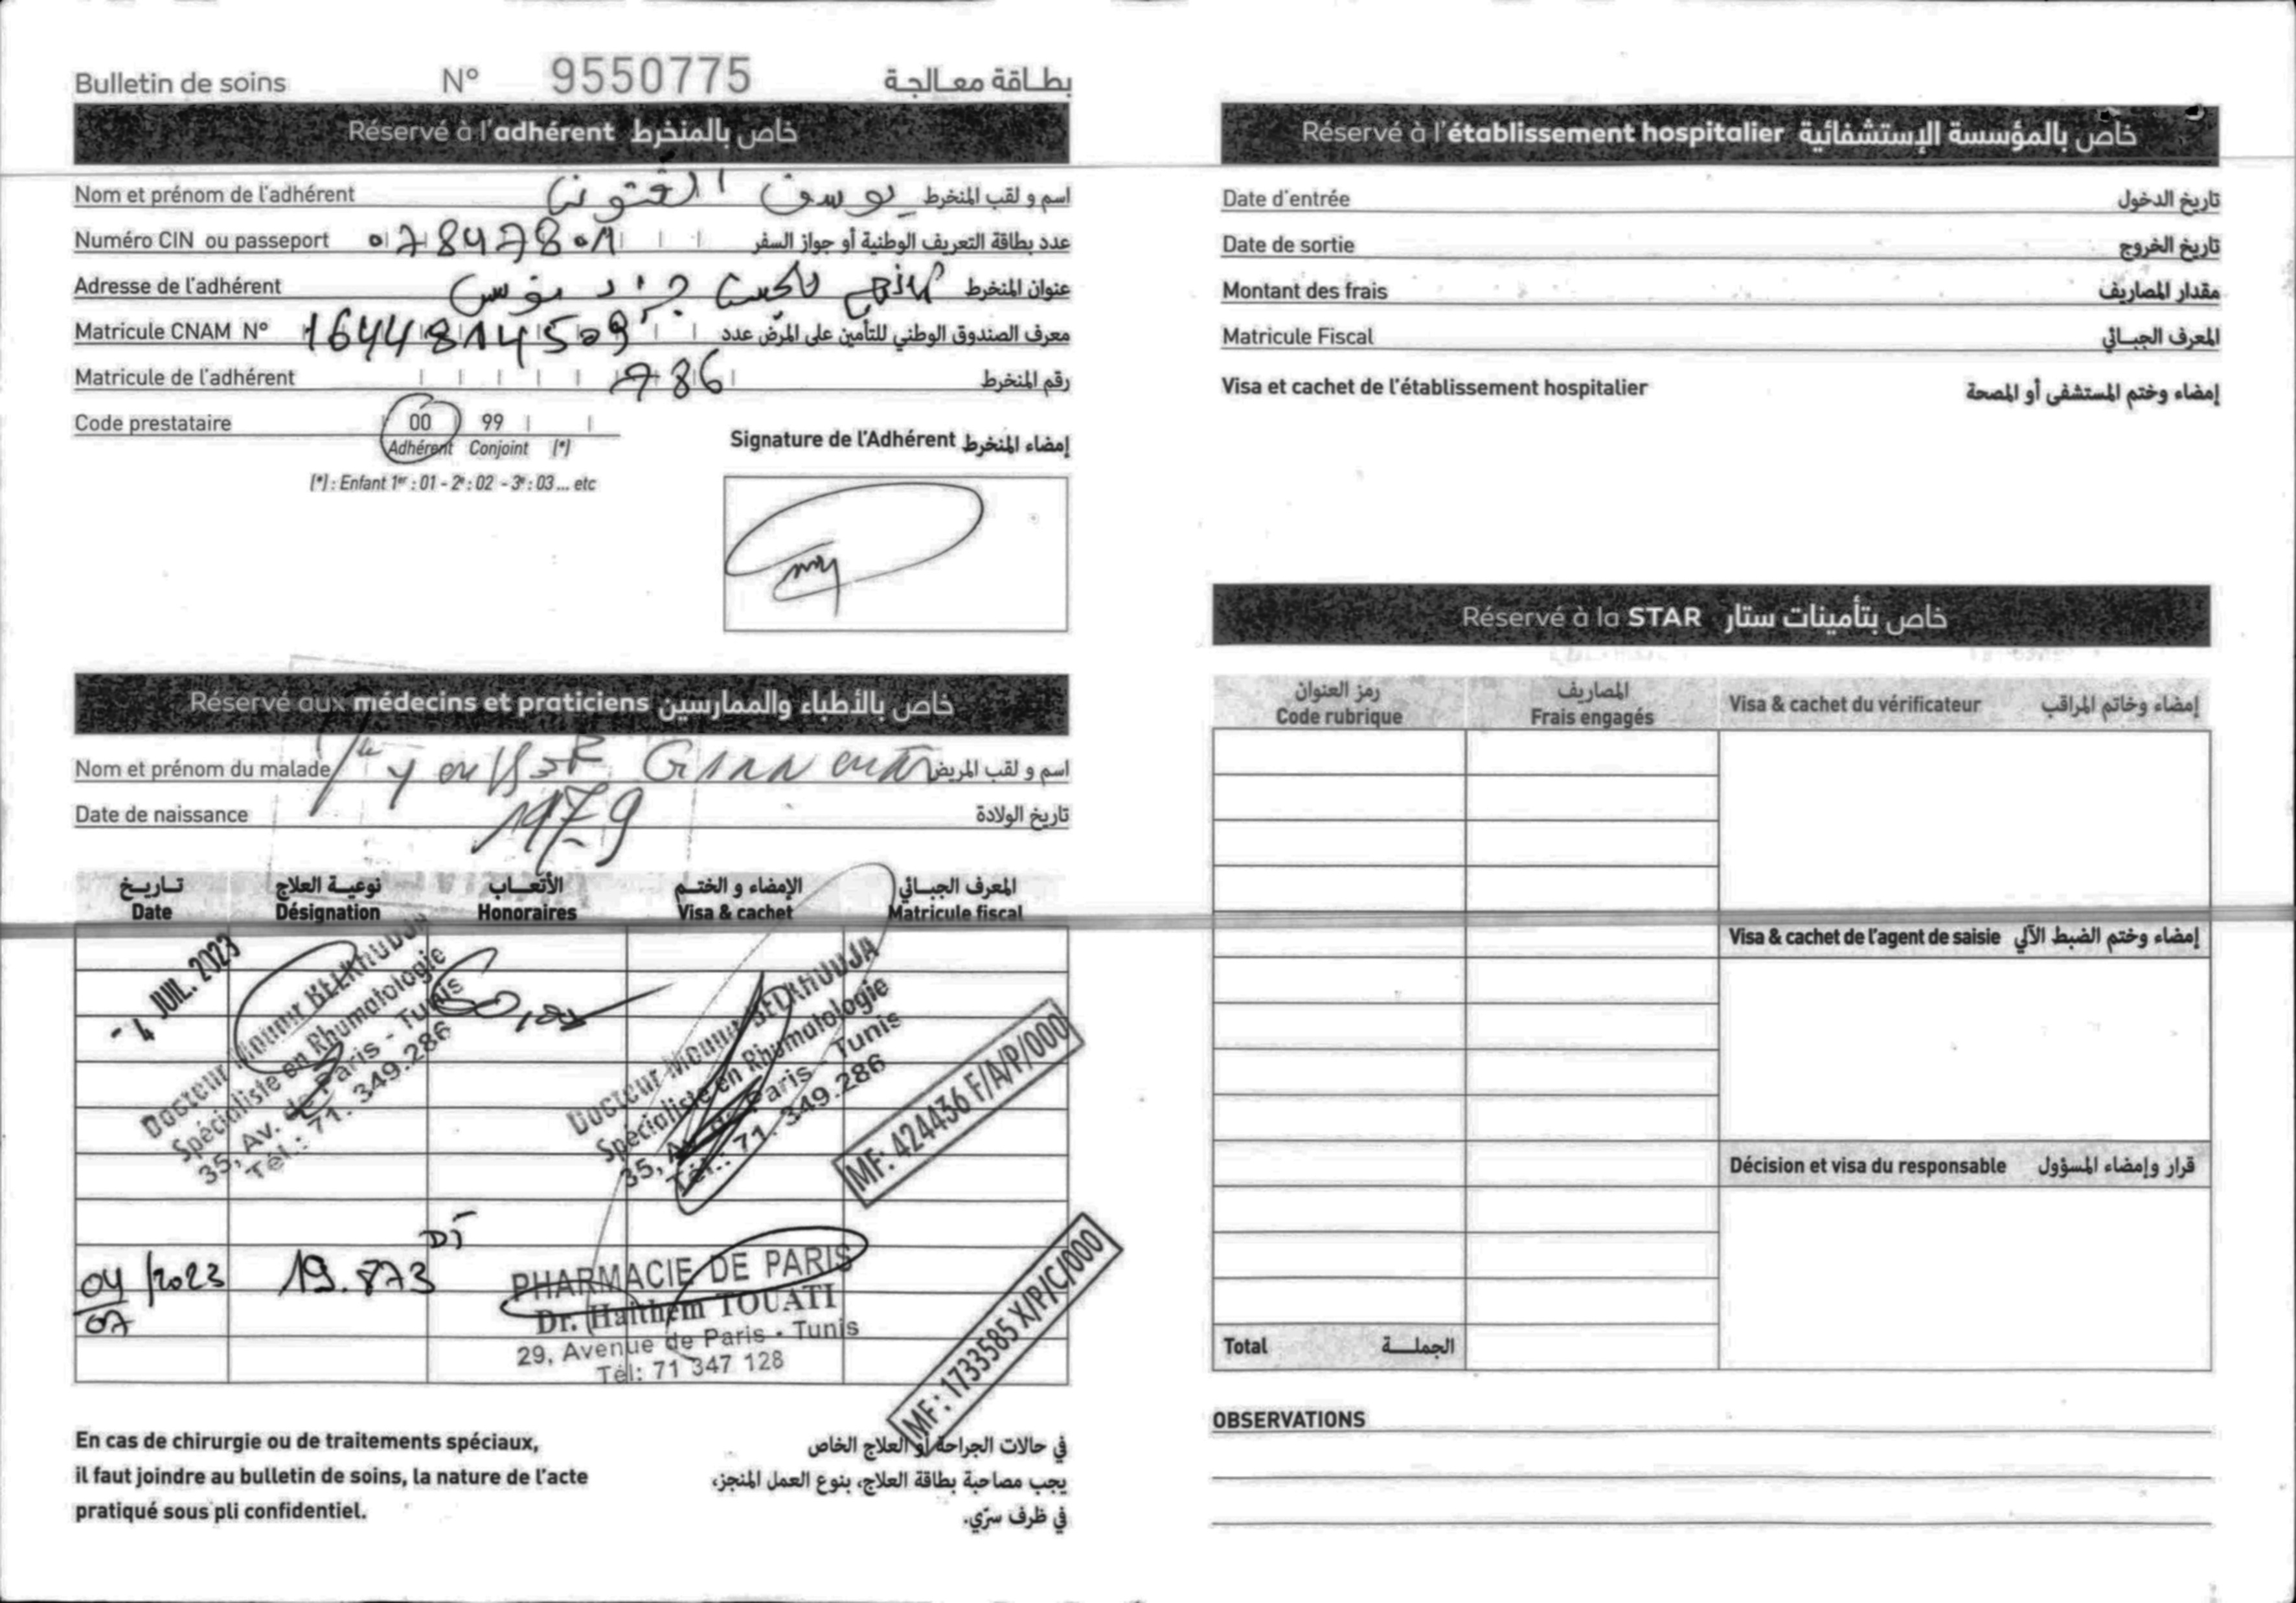 Bulletin de soins N° 9550775 بطاقة معالجة
Réservé à l'adhérent خاص بالمنخرط
Nom et prénom de l'adhérent يوسف اسم و لقب المنخرط
Numéro CIN ou passeport 07847801 عدد بطاقة التعريف الوطنية أو جواز السفر
Adresse de l'adhérent تونس عنوان المنخرط
Matricule CNAM N° 1644814509 معرف الصندوق الوطني للتأمين على المرض عدد
Matricule de l'adhérent 786 رقم المنخرط
Code prestataire 00 99
Adhérent Conjoint (*)
(*) : Enfant 1er : 01 - 2e : 02 - 3e : 03 ... etc
Signature de l'Adhérent إمضاء المنخرط
Réservé aux médecins et praticiens خاص بالأطباء والممارسين
Nom et prénom du malade اسم و لقب المريض
Date de naissance 1979 تاريخ الولادة
تاريخ نوعية العلاج الأتعاب الإمضاء و الختم المعرف الجبائي
Date Désignation Honoraires Visa & cachet Matricule fiscal
- 4 JUIL. 2023
Docteur Mounir BELKHOUDJA
Spécialiste en Rhumatologie
35, Av. de Paris - Tunis
Tél.: 71. 349.286
Docteur Mounir BELKHOUDJA
Spécialiste en Rhumatologie
35, Av. de Paris Tunis
Tél.: 71. 349.286
MF: 424436 F/A/P/000
04/07/2023 19.873 DT
PHARMACIE DE PARIS
Dr. Haithem TOUATI
29, Avenue de Paris - Tunis
Tél: 71 347 128
MF: 1733585 X/P/C/000
En cas de chirurgie ou de traitements spéciaux,
il faut joindre au bulletin de soins, la nature de l'acte
pratiqué sous pli confidentiel.
في حالات الجراحة أو العلاج الخاص
يجب مصاحبة بطاقة العلاج، بنوع العمل المنجز،
في ظرف سرّي.
Réservé à l'établissement hospitalier خاص بالمؤسسة الإستشفائية
Date d'entrée تاريخ الدخول
Date de sortie تاريخ الخروج
Montant des frais مقدار المصاريف
Matricule Fiscal المعرف الجبائي
Visa et cachet de l'établissement hospitalier إمضاء وختم المستشفى أو المصحة
Réservé à la STAR خاص بتأمينات ستار
رمز العنوان المصاريف
Code rubrique Frais engagés Visa & cachet du vérificateur إمضاء وخاتم المراقب
Visa & cachet de l'agent de saisie إمضاء وختم الضبط الآلي
Décision et visa du responsable قرار وإمضاء المسؤول
Total الجملة
OBSERVATIONS